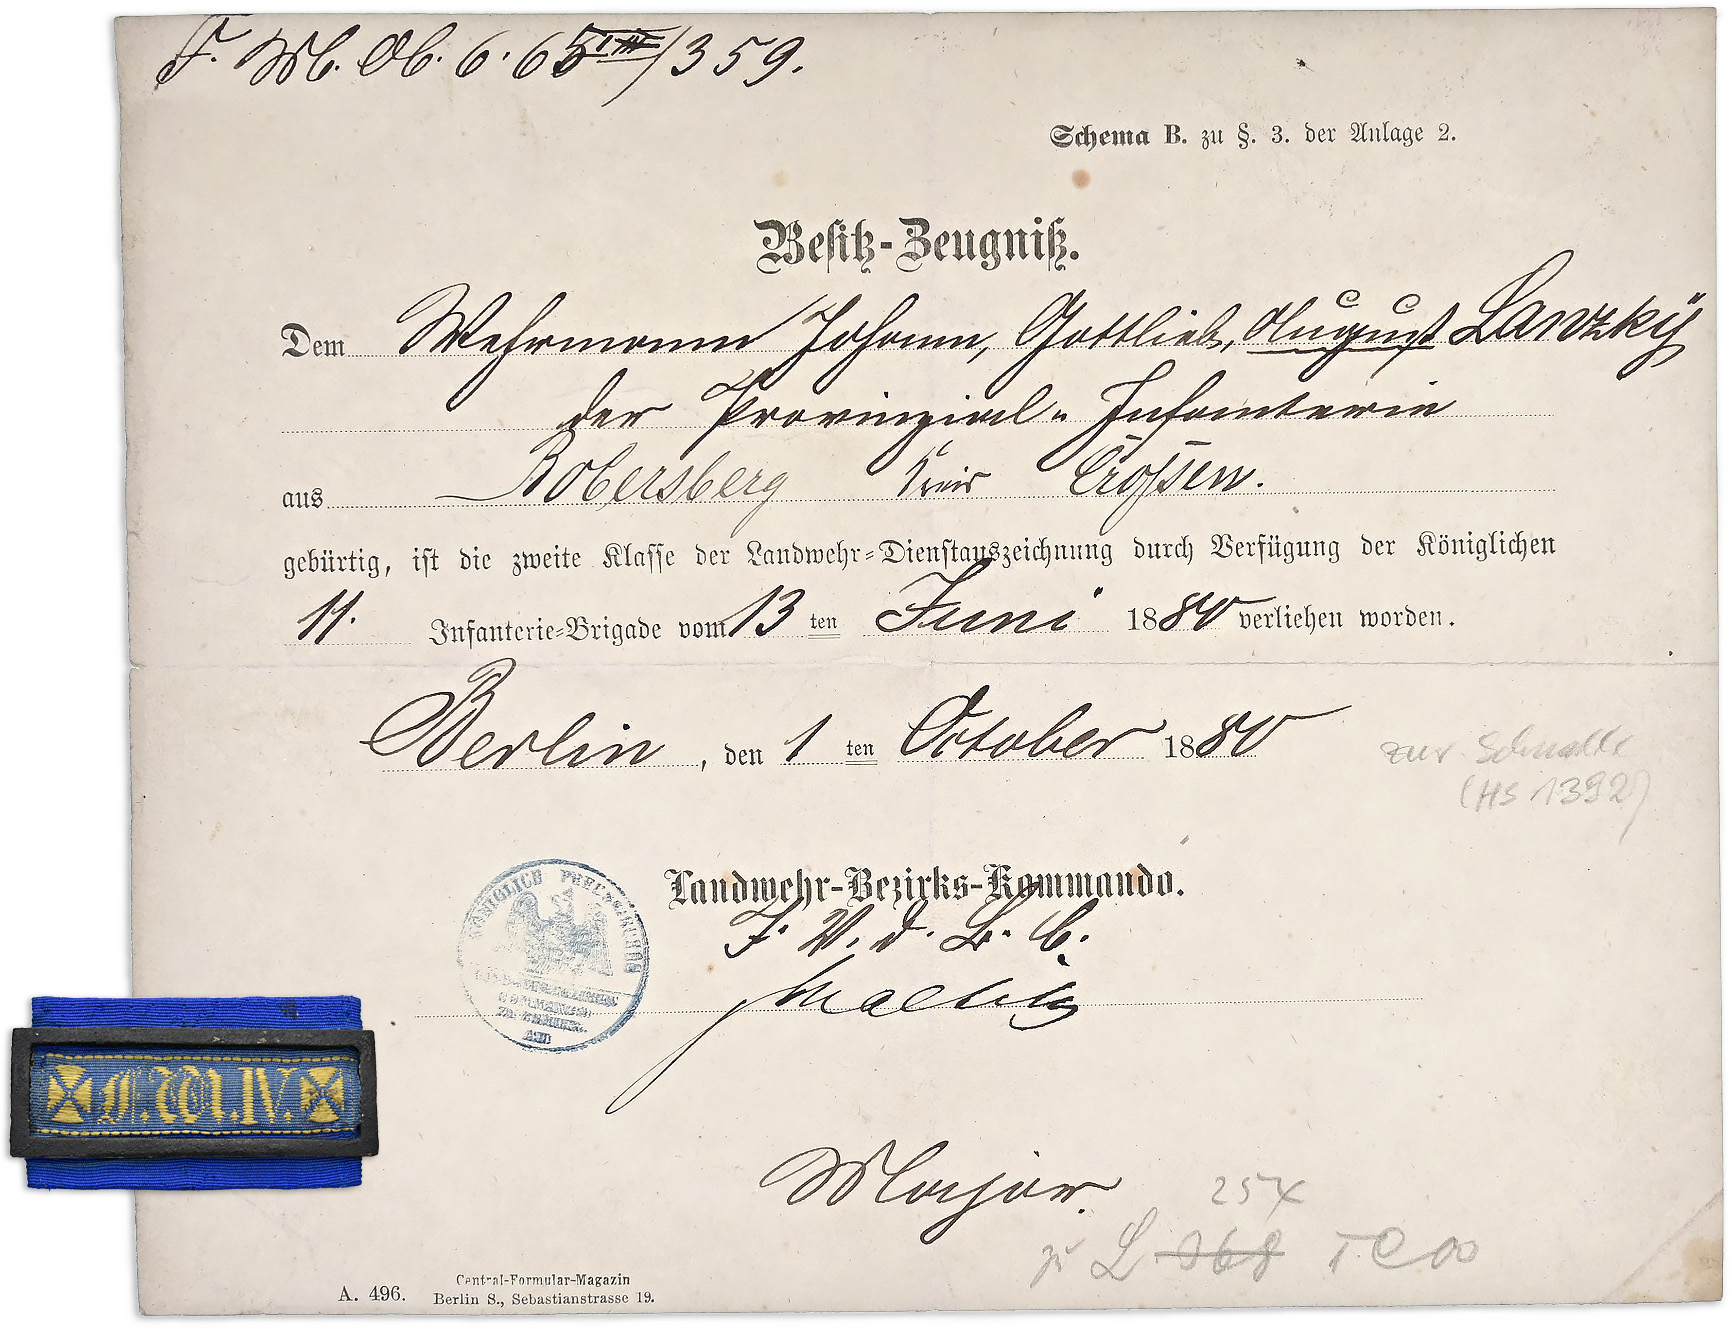 F. M. Ob. 6. 65 /359.
Schema B. zu §. 3. der Anlage 2.
Besitz-Zeugniß.
Dem Wehrmann Johann, Gottlieb, August Lanzky
der Provinzial-Infanterie
aus Bobersberg Kreis Crossen.
gebürtig, ist die zweite Klasse der Landwehr-Dienstauszeichnung durch Verfügung der Königlichen
11. Infanterie-Brigade vom 13 ten Juni 1880 verliehen worden.
Berlin, den 1 ten October 1880
zur Schnalle
(HS 1392)
KÖNIGLICH PREUSSISCHES
Landwehr-Bezirks-Kommando.
F. V. d. B. C.
Major.
F.W.IV.
254
zu L 368
A. 496. Central-Formular-Magazin
Berlin S., Sebastianstrasse 19.